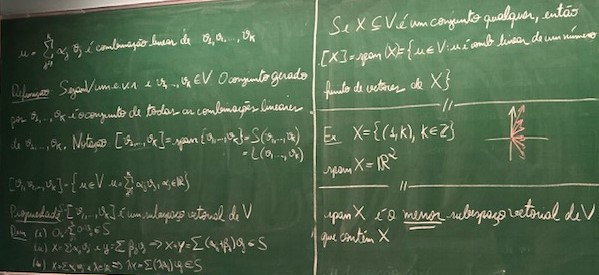 u = Σ_{j=1}^{k} αj vj é combinação linear de v1, v2, ..., vk
Definição Sejam V um e.v.r e v1, ..., vk ∈ V O conjunto gerado
por v1, ..., vk é o conjunto de todas as combinações lineares
de v1, ..., vk. Notação [v1, ..., vk] = span{v1, ..., vk} = S(v1, ..., vk)
= L(v1, ..., vk)
[v1, v2, ..., vk] = {u ∈ V u = Σ αj vj, αj ∈ R}
Propriedade S = [v1, ..., vk] é um subespaço vetorial de V
Dem (i) 0v = Σ 0 vj ∈ S
(ii) x = Σ αj vj e y = Σ βj vj ⇒ x+y = Σ (αj+βj) vj ∈ S
x = Σ αj vj λ ∈ R ⇒ λx = Σ (λαj) vj ∈ S
Se X ⊆ V é um conjunto qualquer, então
[X] = span(X) = {u ∈ V: u é comb linear de um número
finito de vetores de X}
Ex X = {(1, k), k ∈ Z}
span X = R²
span X é o menor subespaço vetorial de V
que contém X